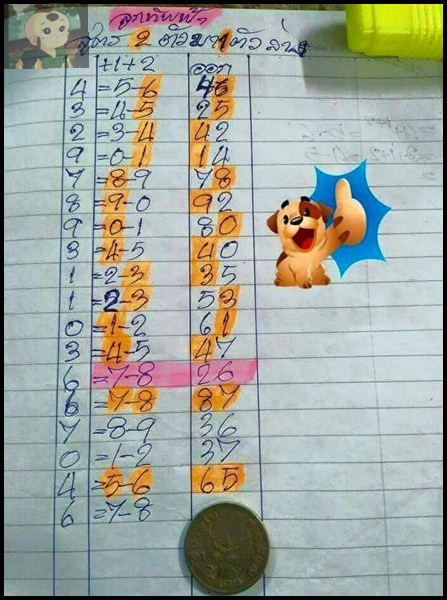 ลูกทัพฟ้า
สูตร 2 ตัวมา 1 ตัวล่าง
+1+2 ออก
4 =5-6 46
3 =4-5 25
2 =3-4 42
9 =0-1 14
7 =8-9 78
8 =9-0 92
9 =0-1 80
3 =4-5 40
1 =2-3 35
1 =2-3 53
0 =1-2 61
3 =4-5 47
6 =7-8 26
6 =7-8 87
7 =8-9 36
0 =1-2 37
4 =5-6 65
6 =7-8